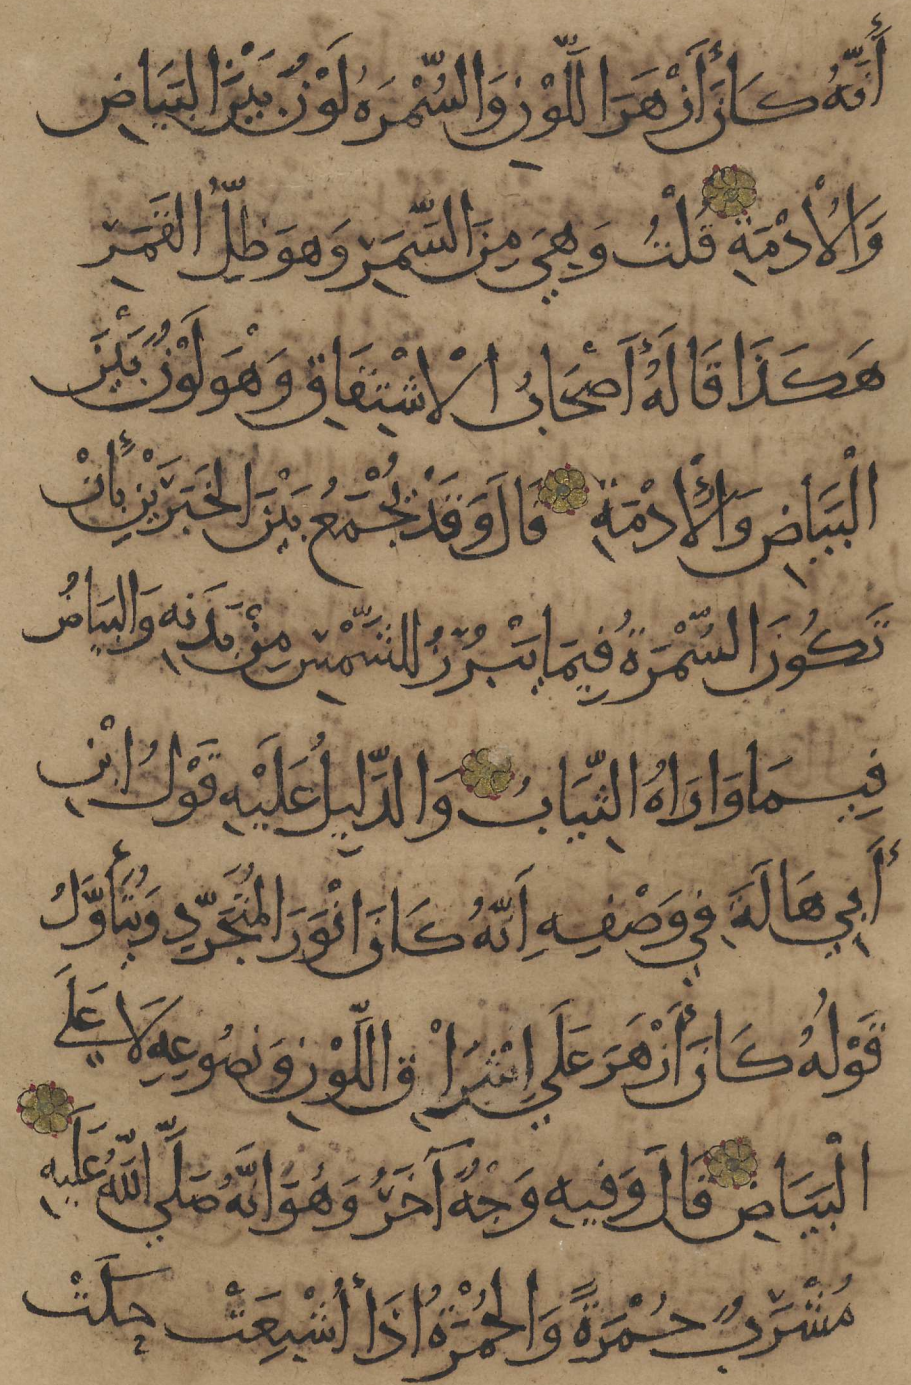 أَنَّهُ كَانَ أَزْهَرَ اللَّوْنِ وَالسُّمْرَةُ لَوْنٌ بَيْنَ البَيَاضِ
وَالْأُدْمَةِ قُلْتُ وَهِيَ مِنَ السَّمَرِ وَهوَ ظِلُّ القَمَرِ
هَكَذَا قَالَهُ أَصْحَابُ الْاشْتِقَاقِ وَهْوَ لَوْنٌ بَيْنَ
الْبَيَاضِ وَالْأُدْمَةِ قَالَ وَقَدْ يُجْمَعُ بَيْنَ الخَبَرَيْنِ بِأَنْ
تَكُونَ السُّمْرَةُ فِيمَا يَبْرُزُ للشَّمْسِ مِنْ بَدَنِهِ وَالبَيَاضُ
فِيمَا وَارَاهُ الثِّيَابُ وَالدَّلِيلُ عَلَيْهِ قَوْلُ ابْنِ
أَبِي هَالَةَ فِي وَصْفِهِ أَنَّهُ كَانَ انْوَرَ المُتَجَرِّدِ وَيُتَأَوَّلُ
قَوْلُهُ كَانَ أَزْهَرَ عَلَى اِشْرَاقِ اللَّوْنِ وَنصُوعِهِ لَا عَلَى
الْبَيَاضِ قَالَ وَفِيهِ وَجْهٌ آخَرُ وَهُوَ انَّهُ صَلَّى اللَّهُ عَلَيهِ
مُشْرَبٌ حُمْرَةً وَالحُمْرَةُ اذَا أُشْبِعَتْ حكَتْ